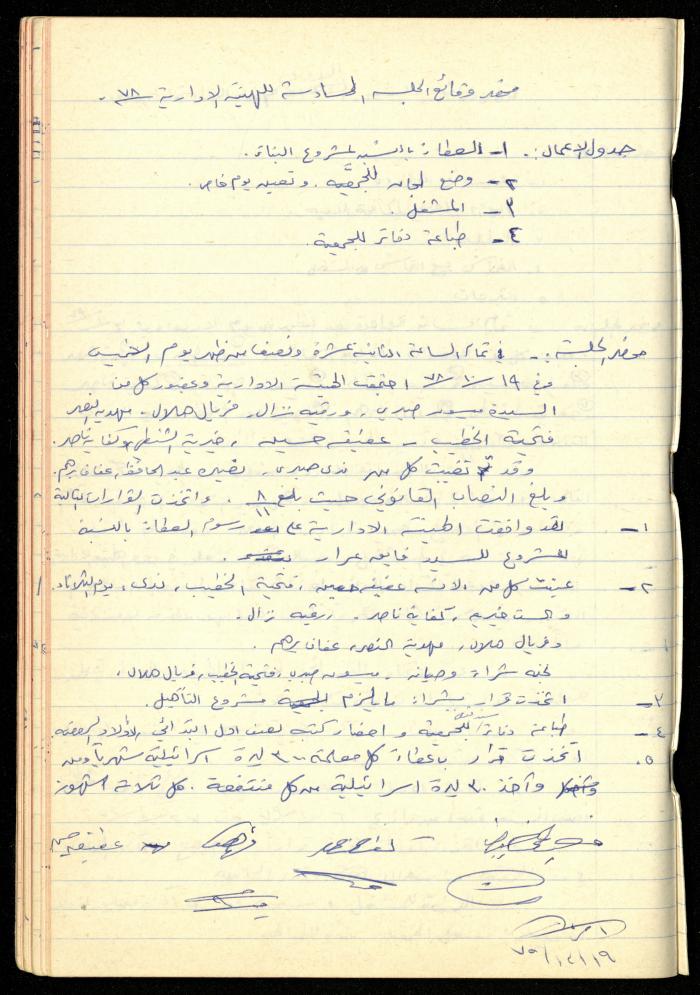 محضر وقائع الجلسة السادسة للهيئة الادارية ٧٨
جدول الاعمال :. ١- العطاء بالنسبة لمشروع البناء.
٢- وضع لجان للجمعية. وتعيين يوم خاص.
٣- المشغل.
٤- طباعة دفاتر للجمعية.
محضر الجلسة :- في تمام الساعة الثانية عشرة ونصف من ظهر يوم الخميس
وفي ١٩ / ١٠ / ٧٨ اجتمعت الهيئة الادارية وبحضور كل من
السيدة ميسون صبري، ورقيه نزال، فريال هلال، مهدية النصر
فتحية الخطيب، عفيفه حسين، خيرية الشنطي، كفاية ناصر.
وقد تغيبت كل من ندى صبري، نصيره عبد الحافظ، عفاف برهم.
وبلغ النصاب القانوني حيث بلغ ٨/١١. واتخذت القرارات التالية
١- لقد وافقت الهيئة الادارية على رسوم العطاء بالنسبة
للمشروع للسيد فايق عرار
٢- عينت كل من الانسه عفيفه حسين، فتحية الخطيب، ندى، يوم الثلاثاء.
والست خيريه، كفاية ناصر، رقيه نزال.
وفريال هلال، مهدية النصر، عفاف برهم.
لجنه شراء وصيانه، ميسون صبري، فتحية الخطيب، فريال هلال.
٣- اتخذت قرار بشراء ما يلزم مشروع التأهيل.
٤- طباعة دفاتر للجمعية و احضار كتبه لصف اول ابتدائي، لأولاد الروضه
٥. اتخذت قرار باعطاء كل معلمة ٣٠٠ ليرة اسرائيلية شهريا ومن
وأخذ ٣٠ ليرة اسرائيلية من كل منتفعة. كل ثلاثة اشهر